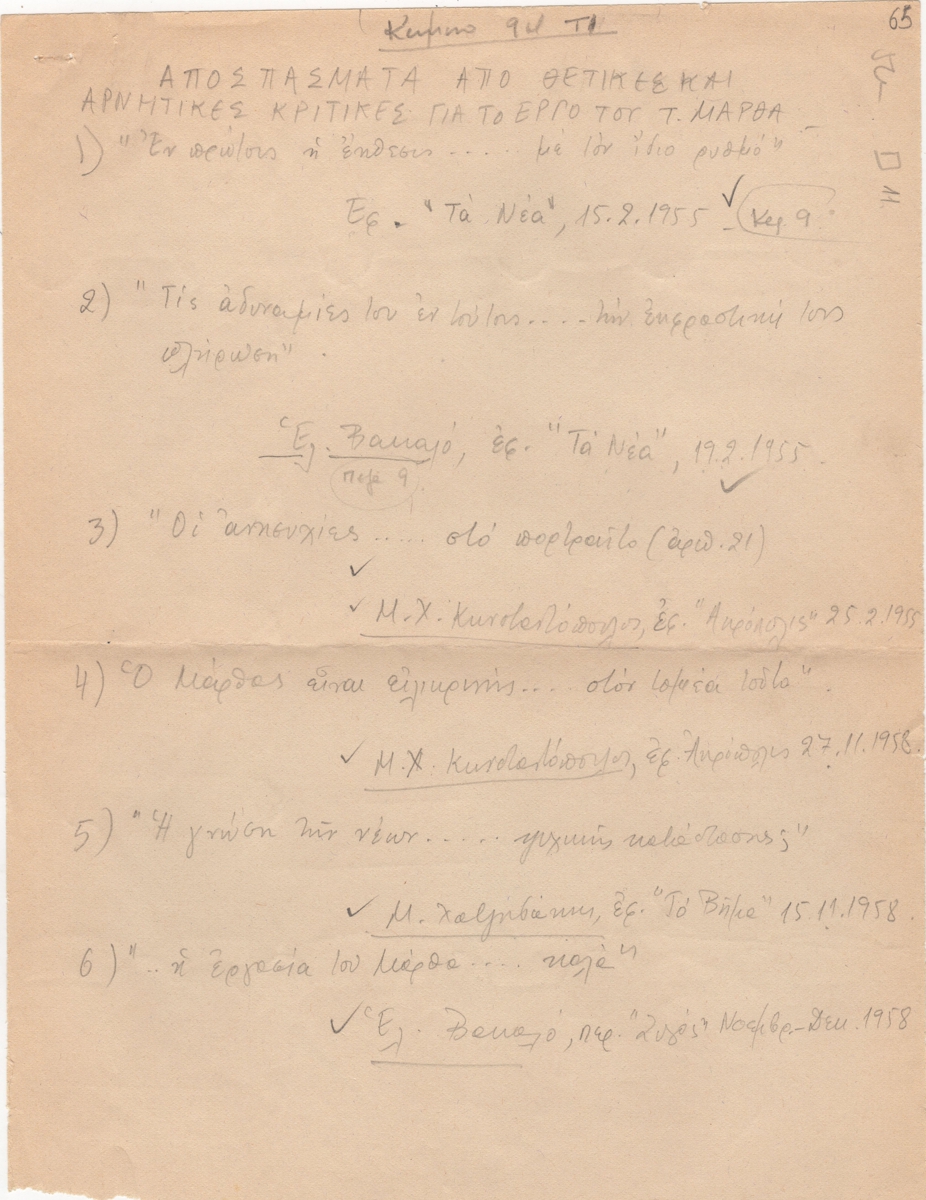 65
ΑΠΟΣΠΑΣΜΑΤΑ ΑΠΟ ΘΕΤΙΚΕΣ ΚΑΙ
ΑΡΝΗΤΙΚΕΣ ΚΡΙΤΙΚΕΣ ΓΙΑ ΤΟ ΕΡΓΟ ΤΟΥ Τ. ΜΑΡΘΑ
1) "Ἐν πρώτοις ἡ ἔκθεσις ..... μέ τόν ἴδιο ρυθμό"
Ἐφ. "Τά Νέα", 15.2.1955 ✓ Κερ. 9
2) "Τίς ἀδυναμίες του ἐν τούτοις ..... τήν ἐκφραστική τους
πλήρωση".
Ἑλ. Βακαλό, ἐφ. "Τά Νέα", 19.2.1955.
9 ✓
3) "Οἱ ἀνησυχίες ..... στό πορτραῖτο (ἀριθ. 21)
✓
✓ Μ.Χ. Κωνσταντόπουλος, ἐφ. "Ἀκρόπολις" 25.2.1955
4) Ὁ Μάρθας εἶναι εἰλικρινής .... στόν τομέα τοῦτο".
✓ Μ.Χ. Κωνσταντόπουλος, ἐφ. Ἀκρόπολις 27.11.1958.
5) "Ἡ γνώση τῶν νέων ..... ψυχικῆς κατάστασης;"
✓ Μ. Χατζηδάκης, ἐφ. "Τό Βῆμα" 15.11.1958.
6) ".. ἡ ἐργασία τοῦ Μάρθα .... καλά"
✓ Ἑλ. Βακαλό, περ. "Ζυγός" Νοεμβρ.-Δεκ. 1958